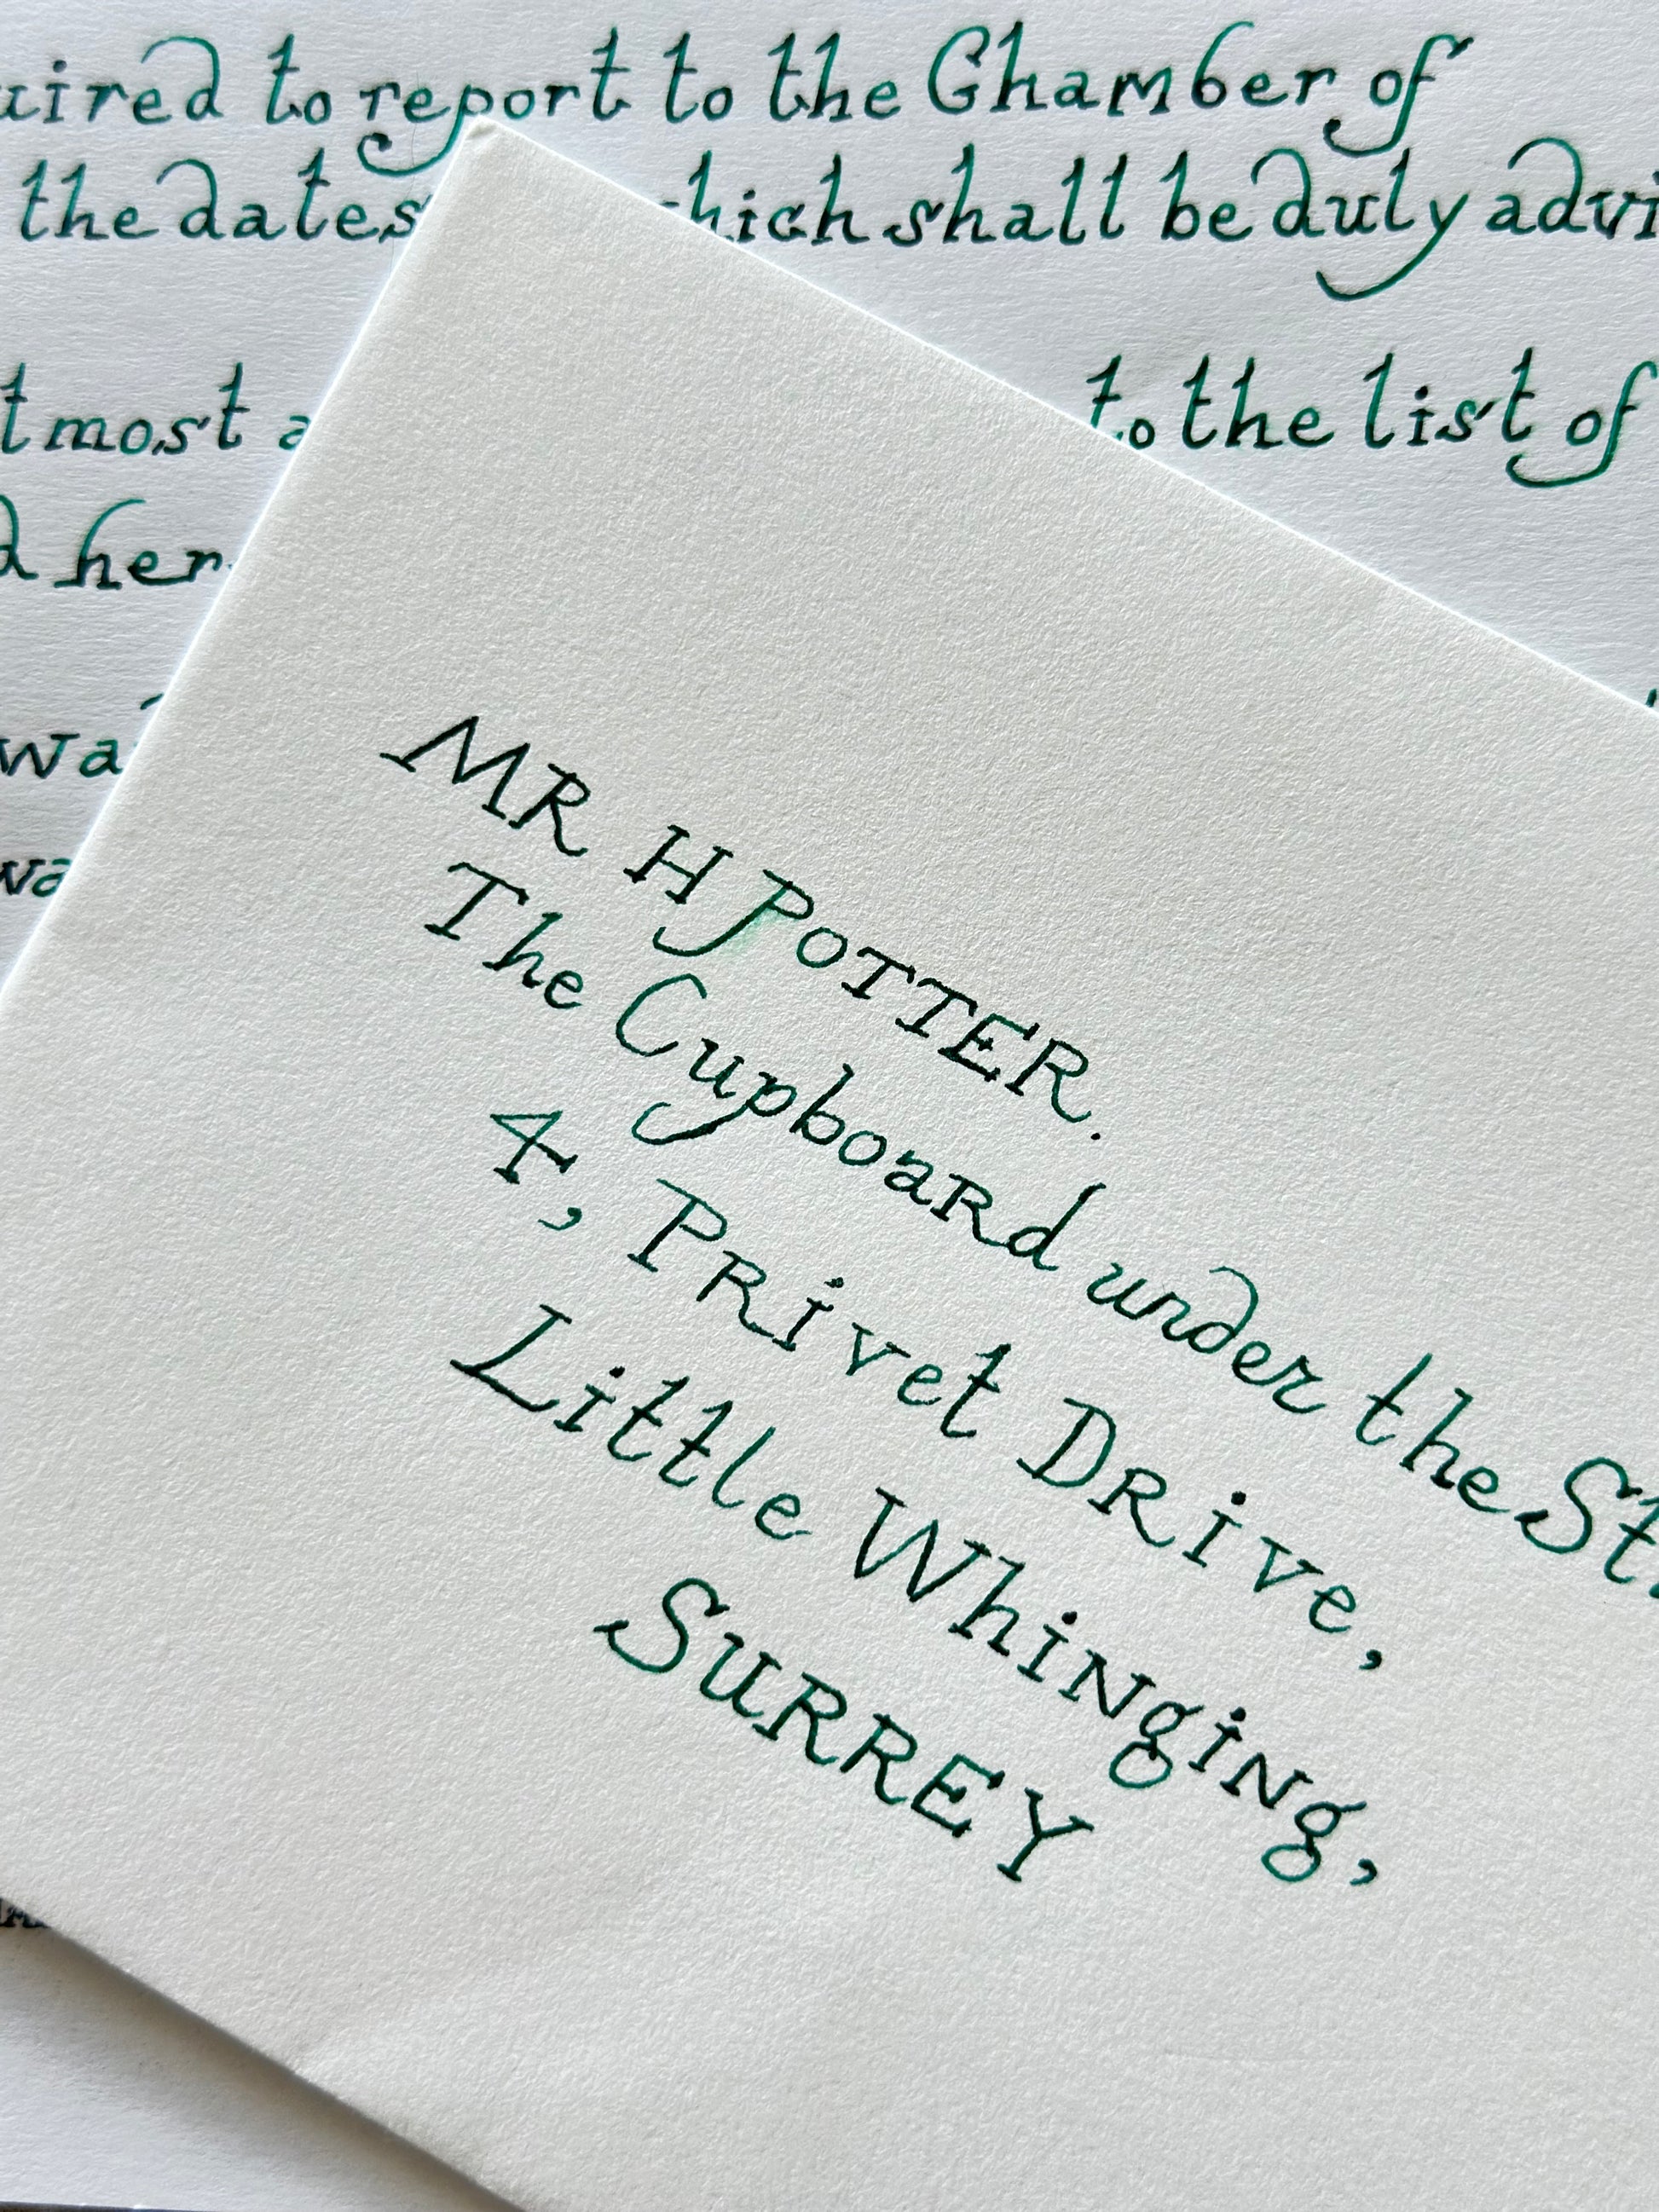 to report to the Chamber of
the dates which shall be duly
utmost to the list of
MR H POTTER.
The Cupboard under the
4, Privet Drive,
Little Whinging,
SURREY